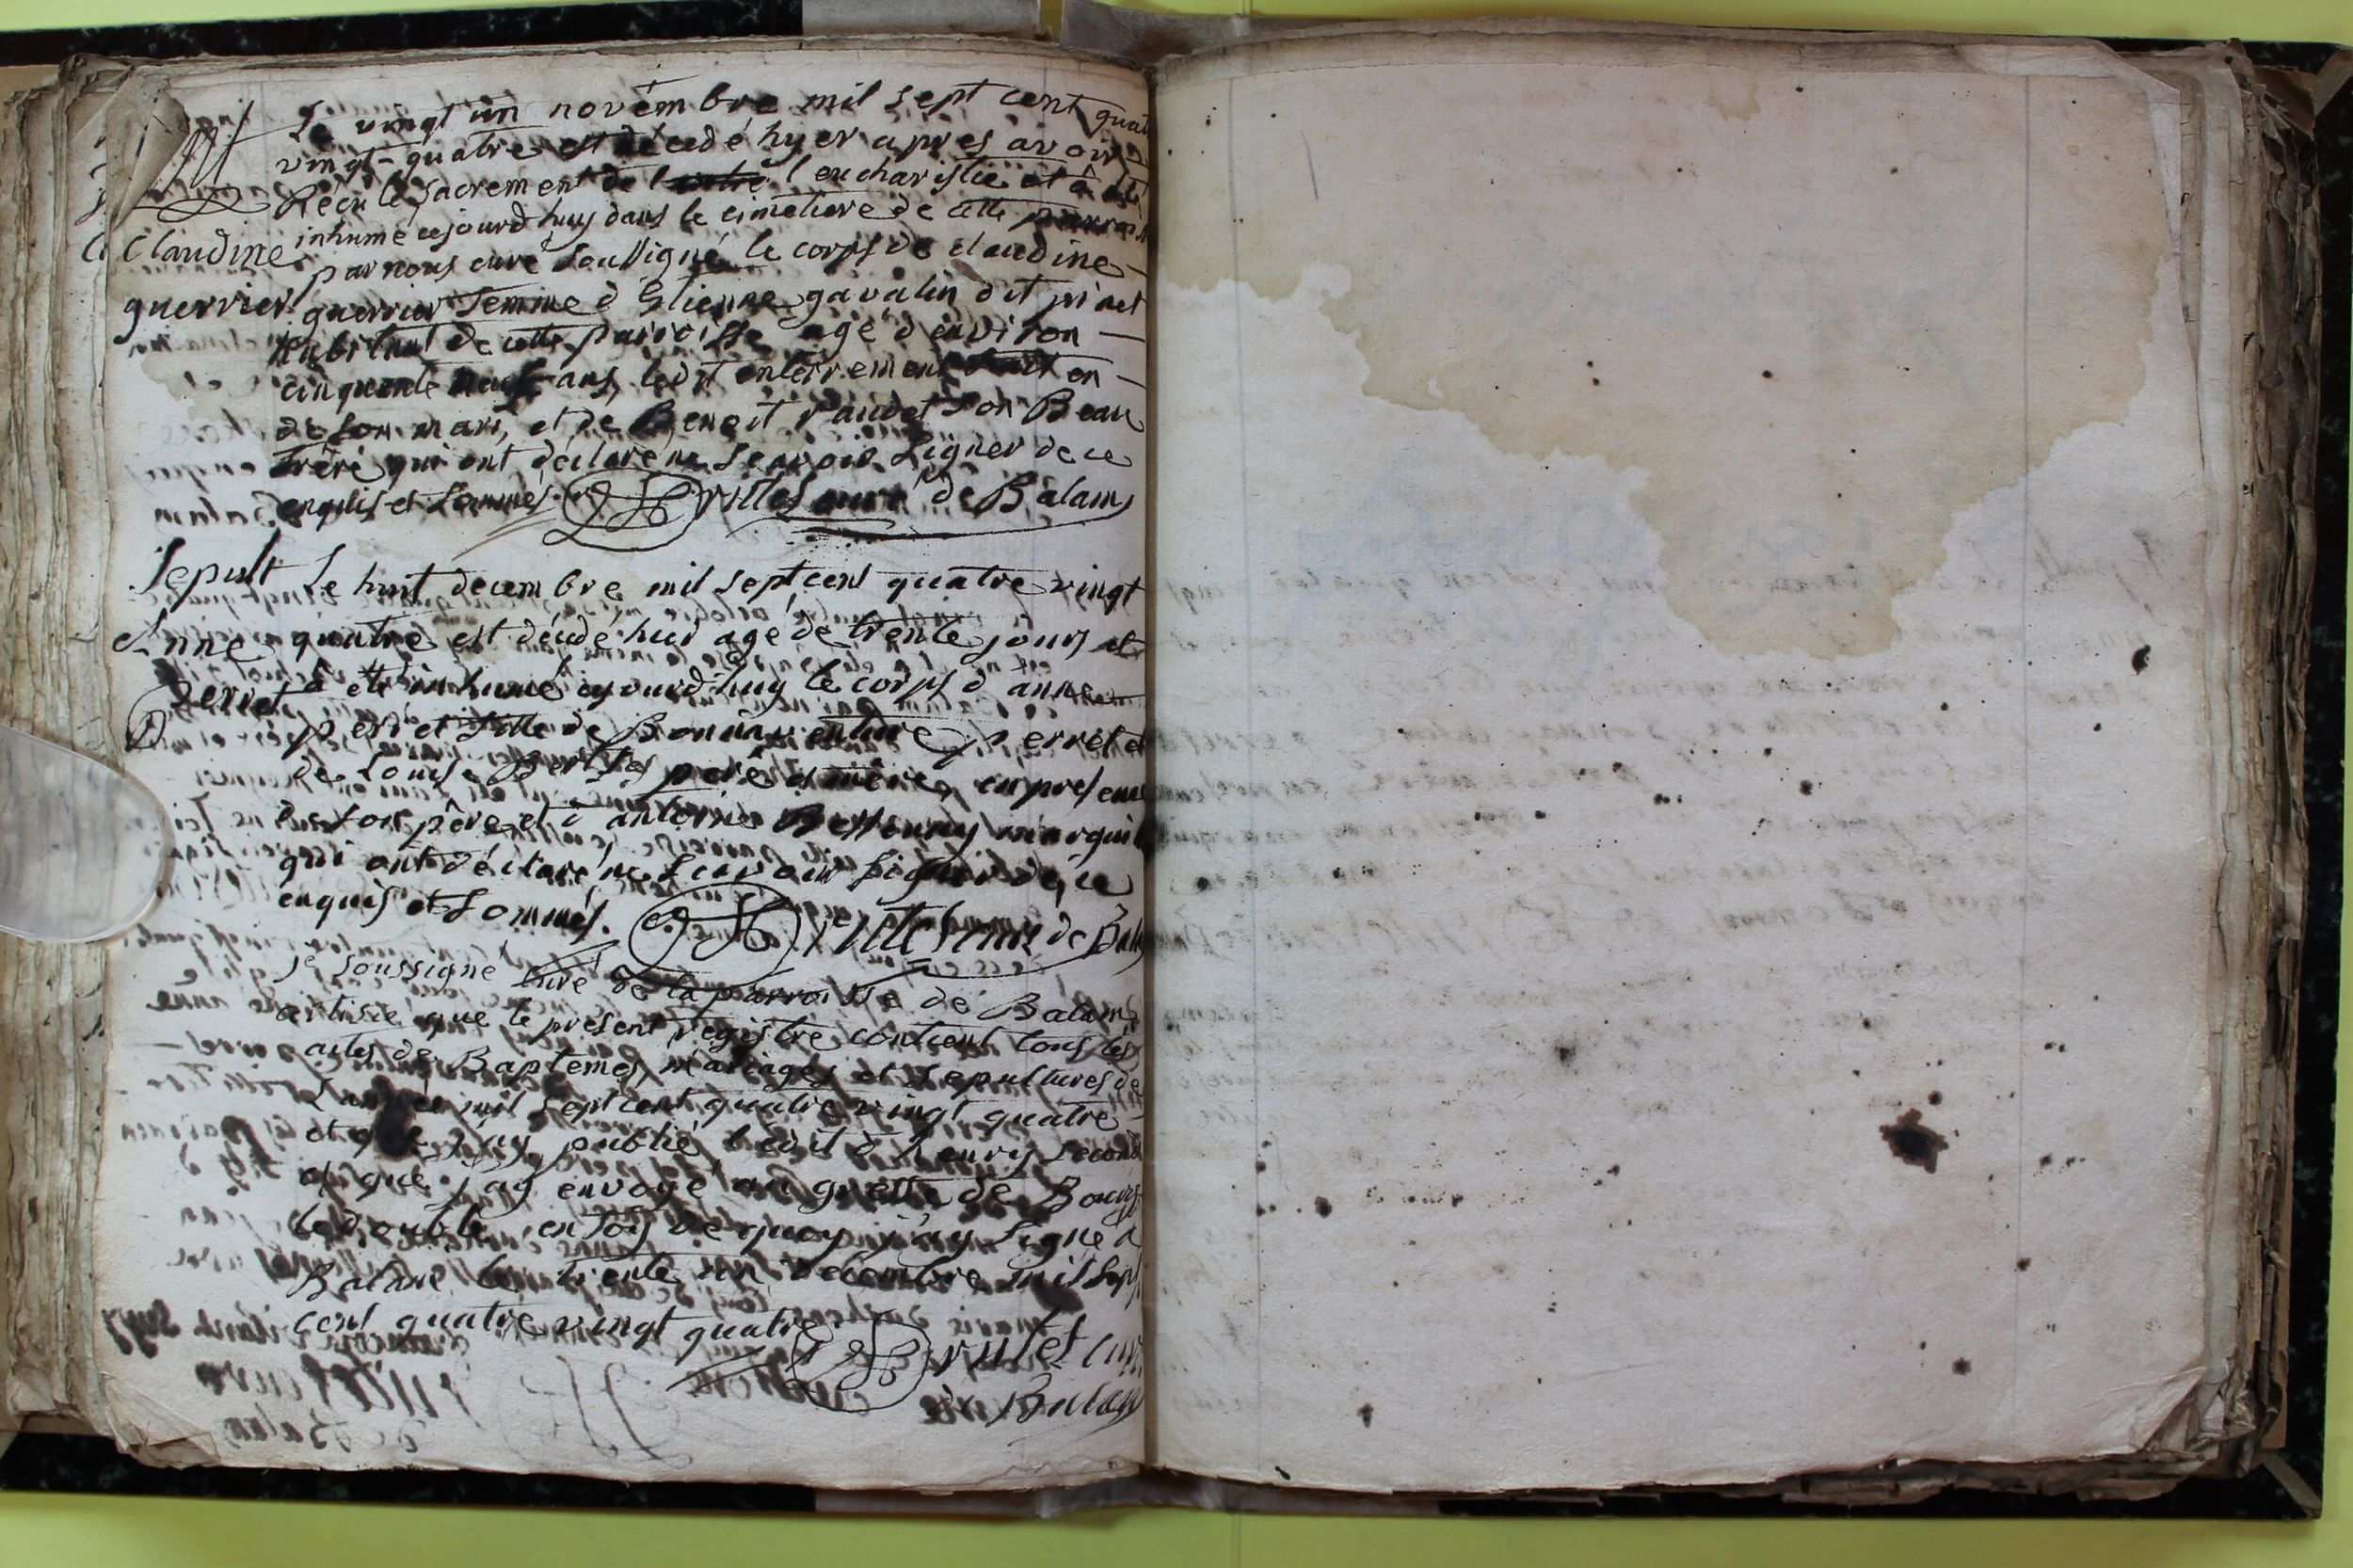 Le vingt un novembre mil sept cent quat
vingt-quatre est décedé hyer apres avoir
Reçu le sacrement de l'eucharistie et à été
inhumé cejourd'huy dans le cimetiere de cette
Claudine
par nous curé soussigné le corps de claudine
guerrier
guerrier femme d'Etienne gavalin dit
habitant de cette parroisse agé d'environ
cinquante neuf ans, ledit enterrement en
de son mari, et de Benoit son Beau
frère qui ont déclaré ne sçavoir signer de ce
enquis et sommés. villet curé de Balam
Sepult
Le huit decembre mil sept cent quatre vingt
Anne
quatre est décedé hier agé de trente jours et
perret
à été inhumé cejourd'huy le corps d'anne
perret fille de Bonnaventure perret et
de Louise pere et mère, en presence
de son père et d'antoine marguil
qui ont déclaré ne sçavoir signer de ce
enquis et sommés. villet curé de Bala
je soussigné curé de la parroisse de Balam
certifie que le present registre contient tous les
actes de Baptemes, mariages et sepultures de
L'année mil sept cent quatre vingt quatre
et que j'ay publié l'edit d'henry second
et que j'ay envoyé au greffe de Bourg
le double, en foy de quoy j'ay signé a
Balame le trente un decembre mil sept
cent quatre vingt quatre villet curé
Balam